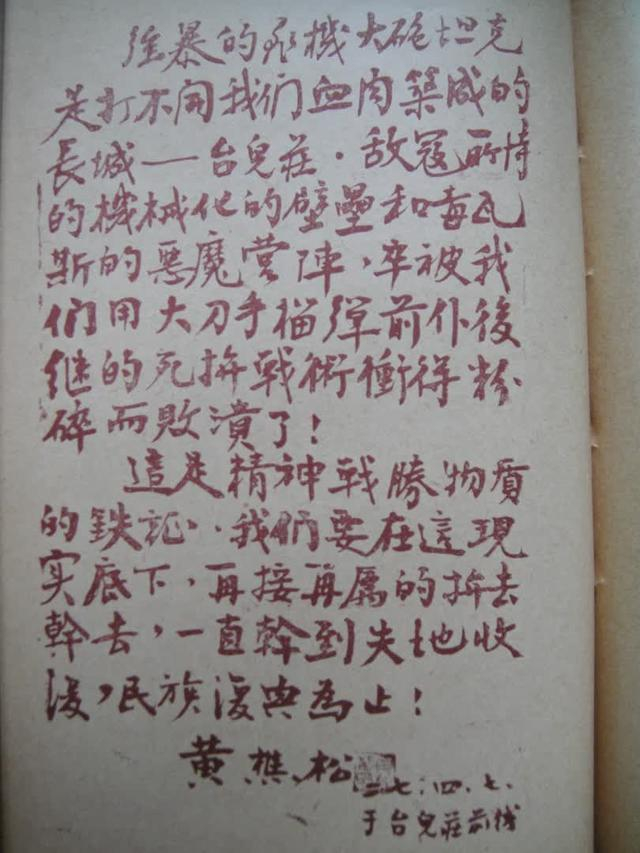 强暴的飛機大砲坦克
是打不開我们血肉築成的
長城——台兒莊.敌寇所恃
的機械化的壁壘和毒瓦
斯的惡魔营陣,卒被我
们用大刀手榴弹前仆後
继的死拚戰術衝得粉
碎而敗潰了!
這是精神戰勝物質
的鉄証..我們要在這現
实底下,再接再厲的拚去
幹去,一直幹到失地收
復,民族復興為止!
黄樵松
二七.四.七.
于台兒莊前线